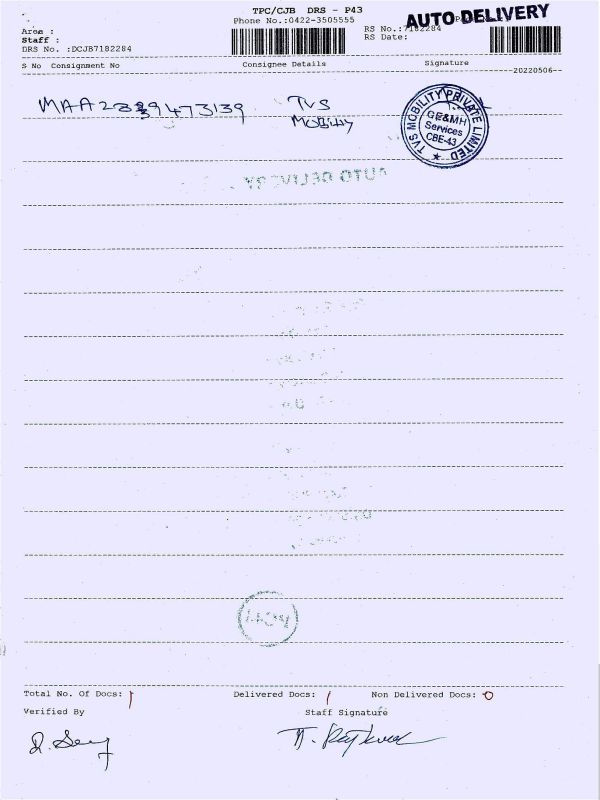 TPC/CJB DRS - P43
AUTO DELIVERY
Phone No.:0422-3505555
Area :
RS No.:7182284
Staff :
RS Date:
DRS No. :DCJB7182284
S No Consignment No Consignee Details Signature
20220506
TVS
MOBILITY
TVS MOBILITY PRIVATE LIMITED
GE&MH
Services
CBE-43
AUTO DELIVERY
Total No. Of Docs: 1 Delivered Docs: 1 Non Delivered Docs: 0
Verified By Staff Signature